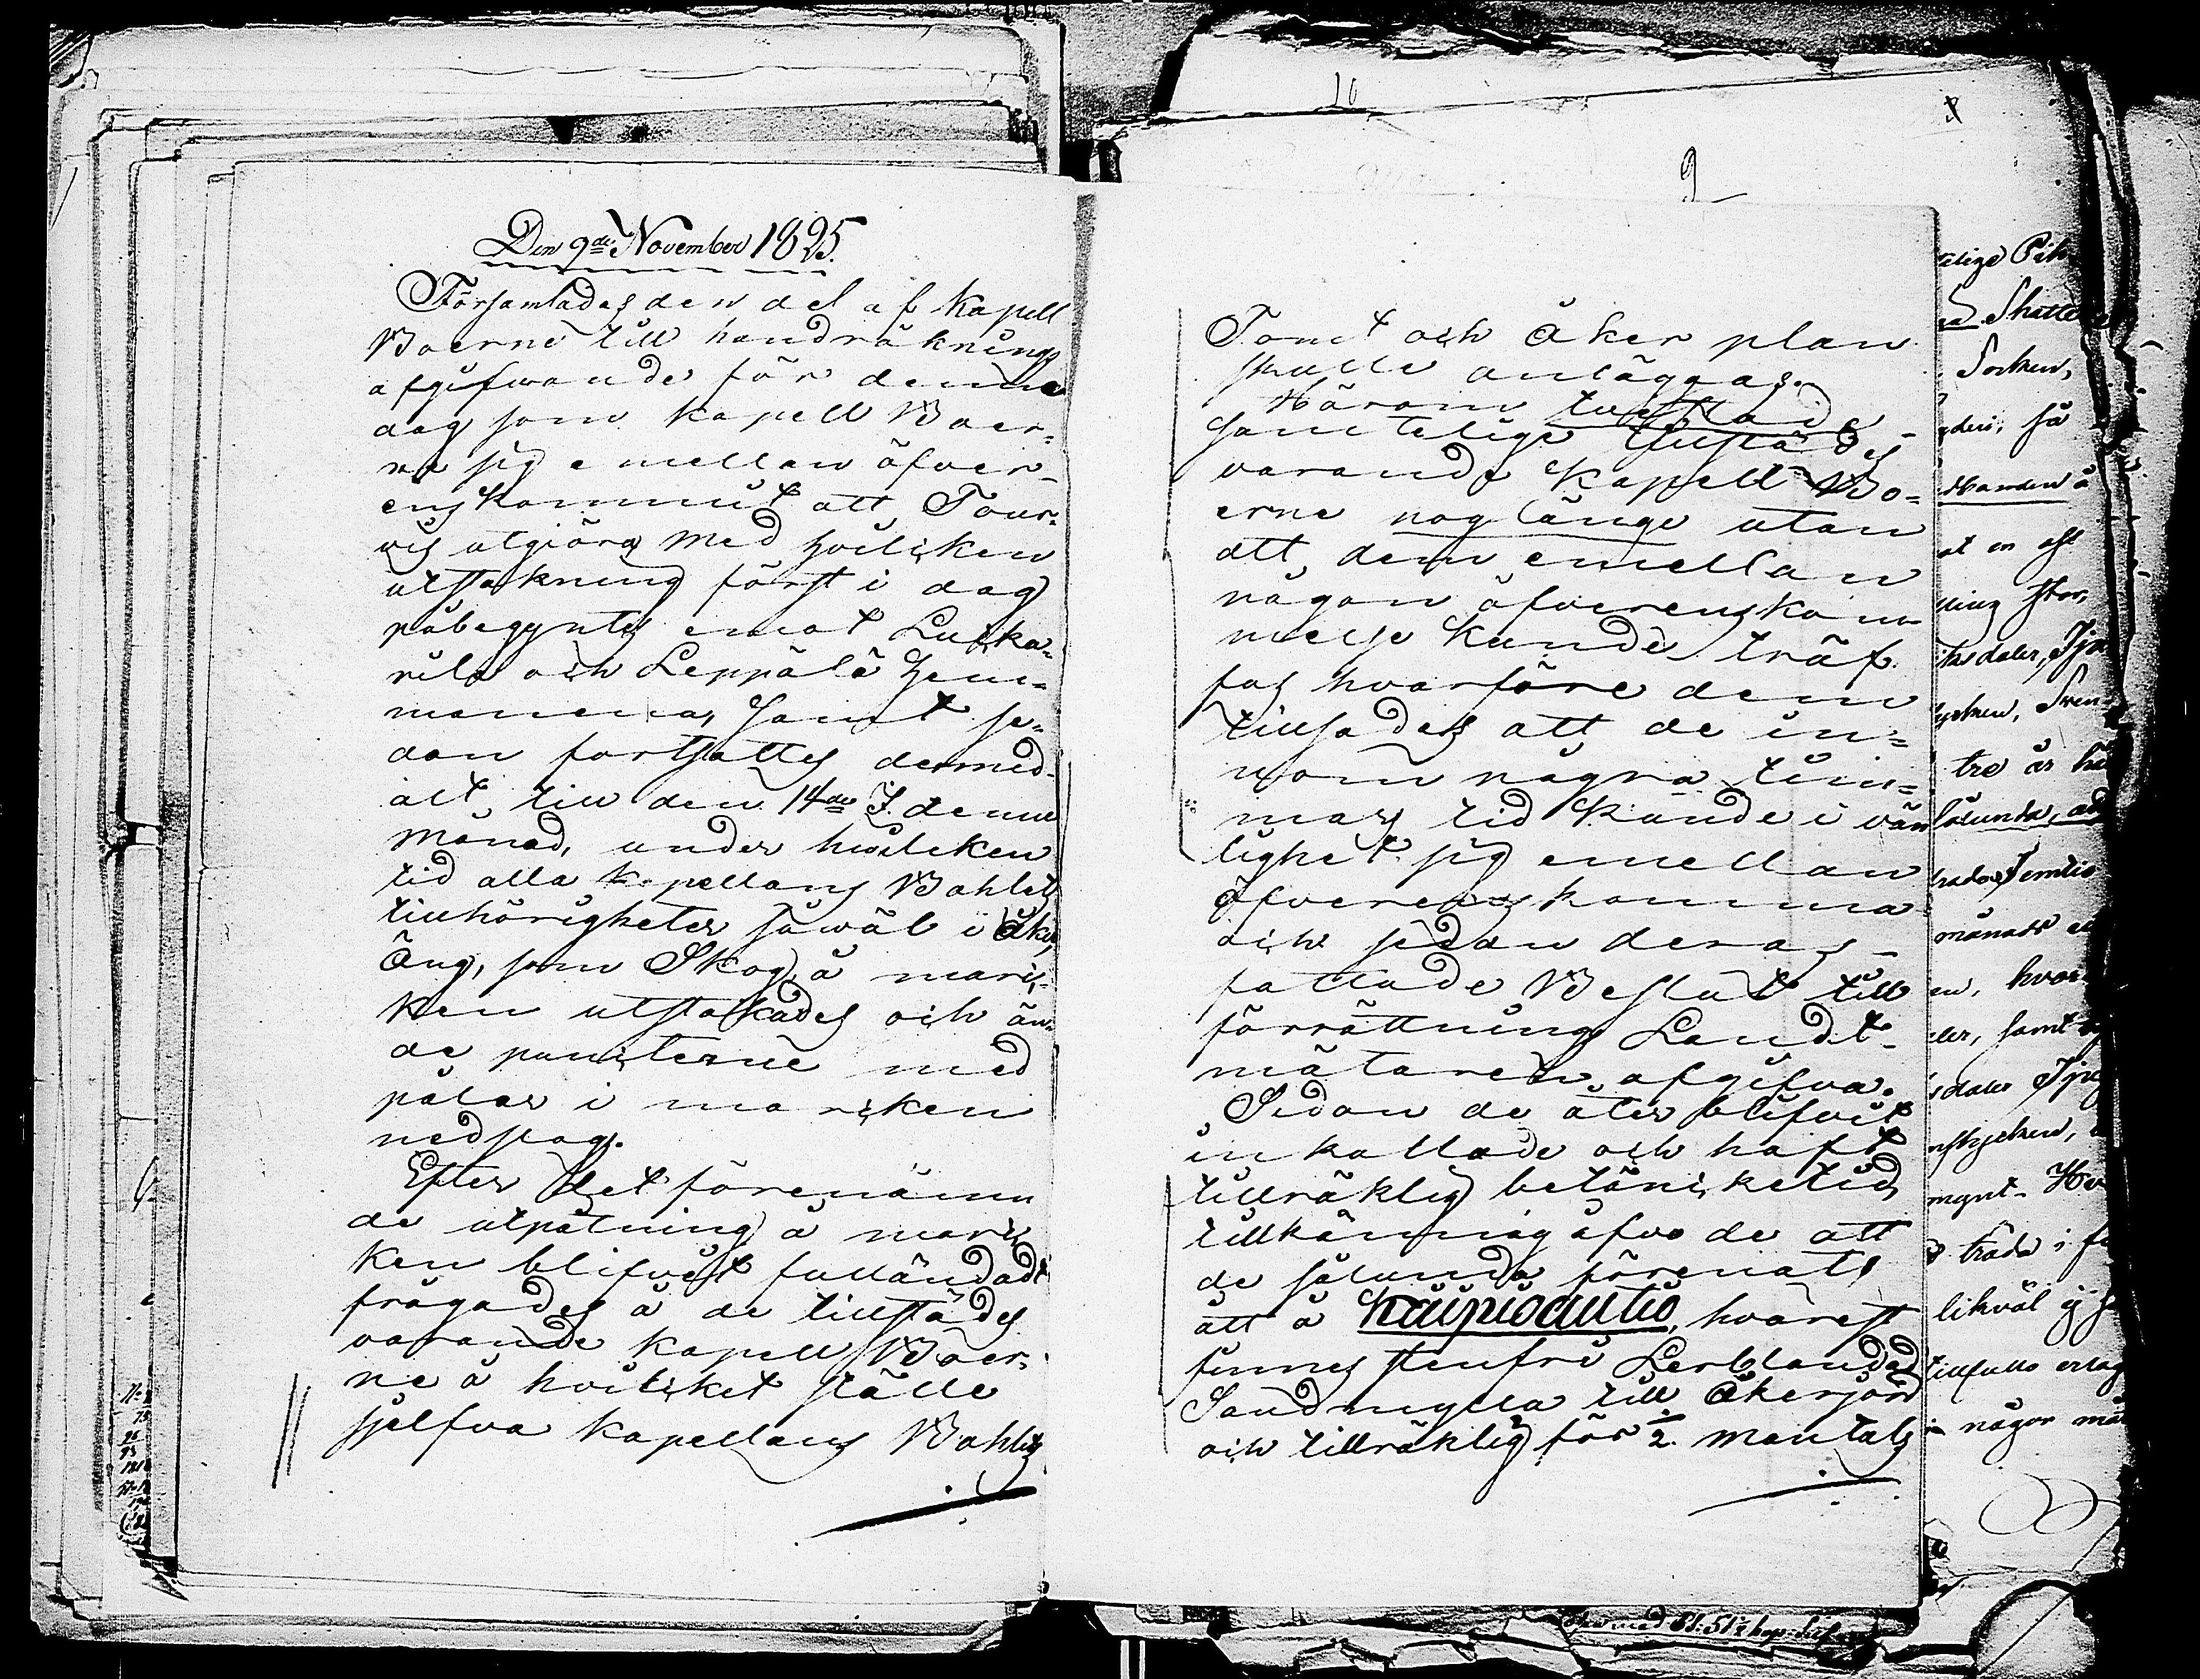 Den 9de November 1825.
Församlades den del af Kapell
Boerne till handräknings
afgifwande för denna
dag som Kapell Boer-
ne sig emellan öfver-
enskommit att Tour-
vis utgiöra med hvilcken
utstakning först i dag
påbegyntes emot
och Leppälä Hem-
manena, samt se-
dan fortsattes dermed
alt till den 14de I. denne
månad, under hvilcken
tid alla Kapellans Bohlets
tillhörigheter såwäl i Åker,
Äng, som Skog å marc-
ken utstakades och än-
de puncterne med
pålar i marcken
nedslag.
Efter det förenämn
de utpålning å marc
ken blifvit fulländadt
frågades å de tillstädes
varande Kapell Boer-
ne å hvilcket ställe
sjelfva Kapellans Bohlets
10
9
Tomt och åker plan
skulle anläggas.
Härom tvistade
samtelige tillstädes
varande Kapell Bo-
erne nog länge utan
att dem emellan
någon öfverenskom
melse kunde träf-
fas hvarföre dem
tillsades att de in-
nom några tim-
mars tid kunde i vän
lighet sig emellan
öfverens komma
och sedan deras
fattade Beslut till
förrättnings Landt-
mätaren afgifva.
Sedan de åter blifvit
inkallade och haft
tillräcklig betänketid
tillkännagåfvo de att
de sålunda förenats
att å Käupiöautio, hvarest
finnes stenfri Lerblandad
Sandmylla till Åkerjord
och tillräcklig för 1/2 mantals
telige
Skatte
Socken,
så
Manden å
at en
ning stor,
tre år
månads
hvar
samt
daler
mynt.
träda i
likväl ej
tillfullo erlag
någor